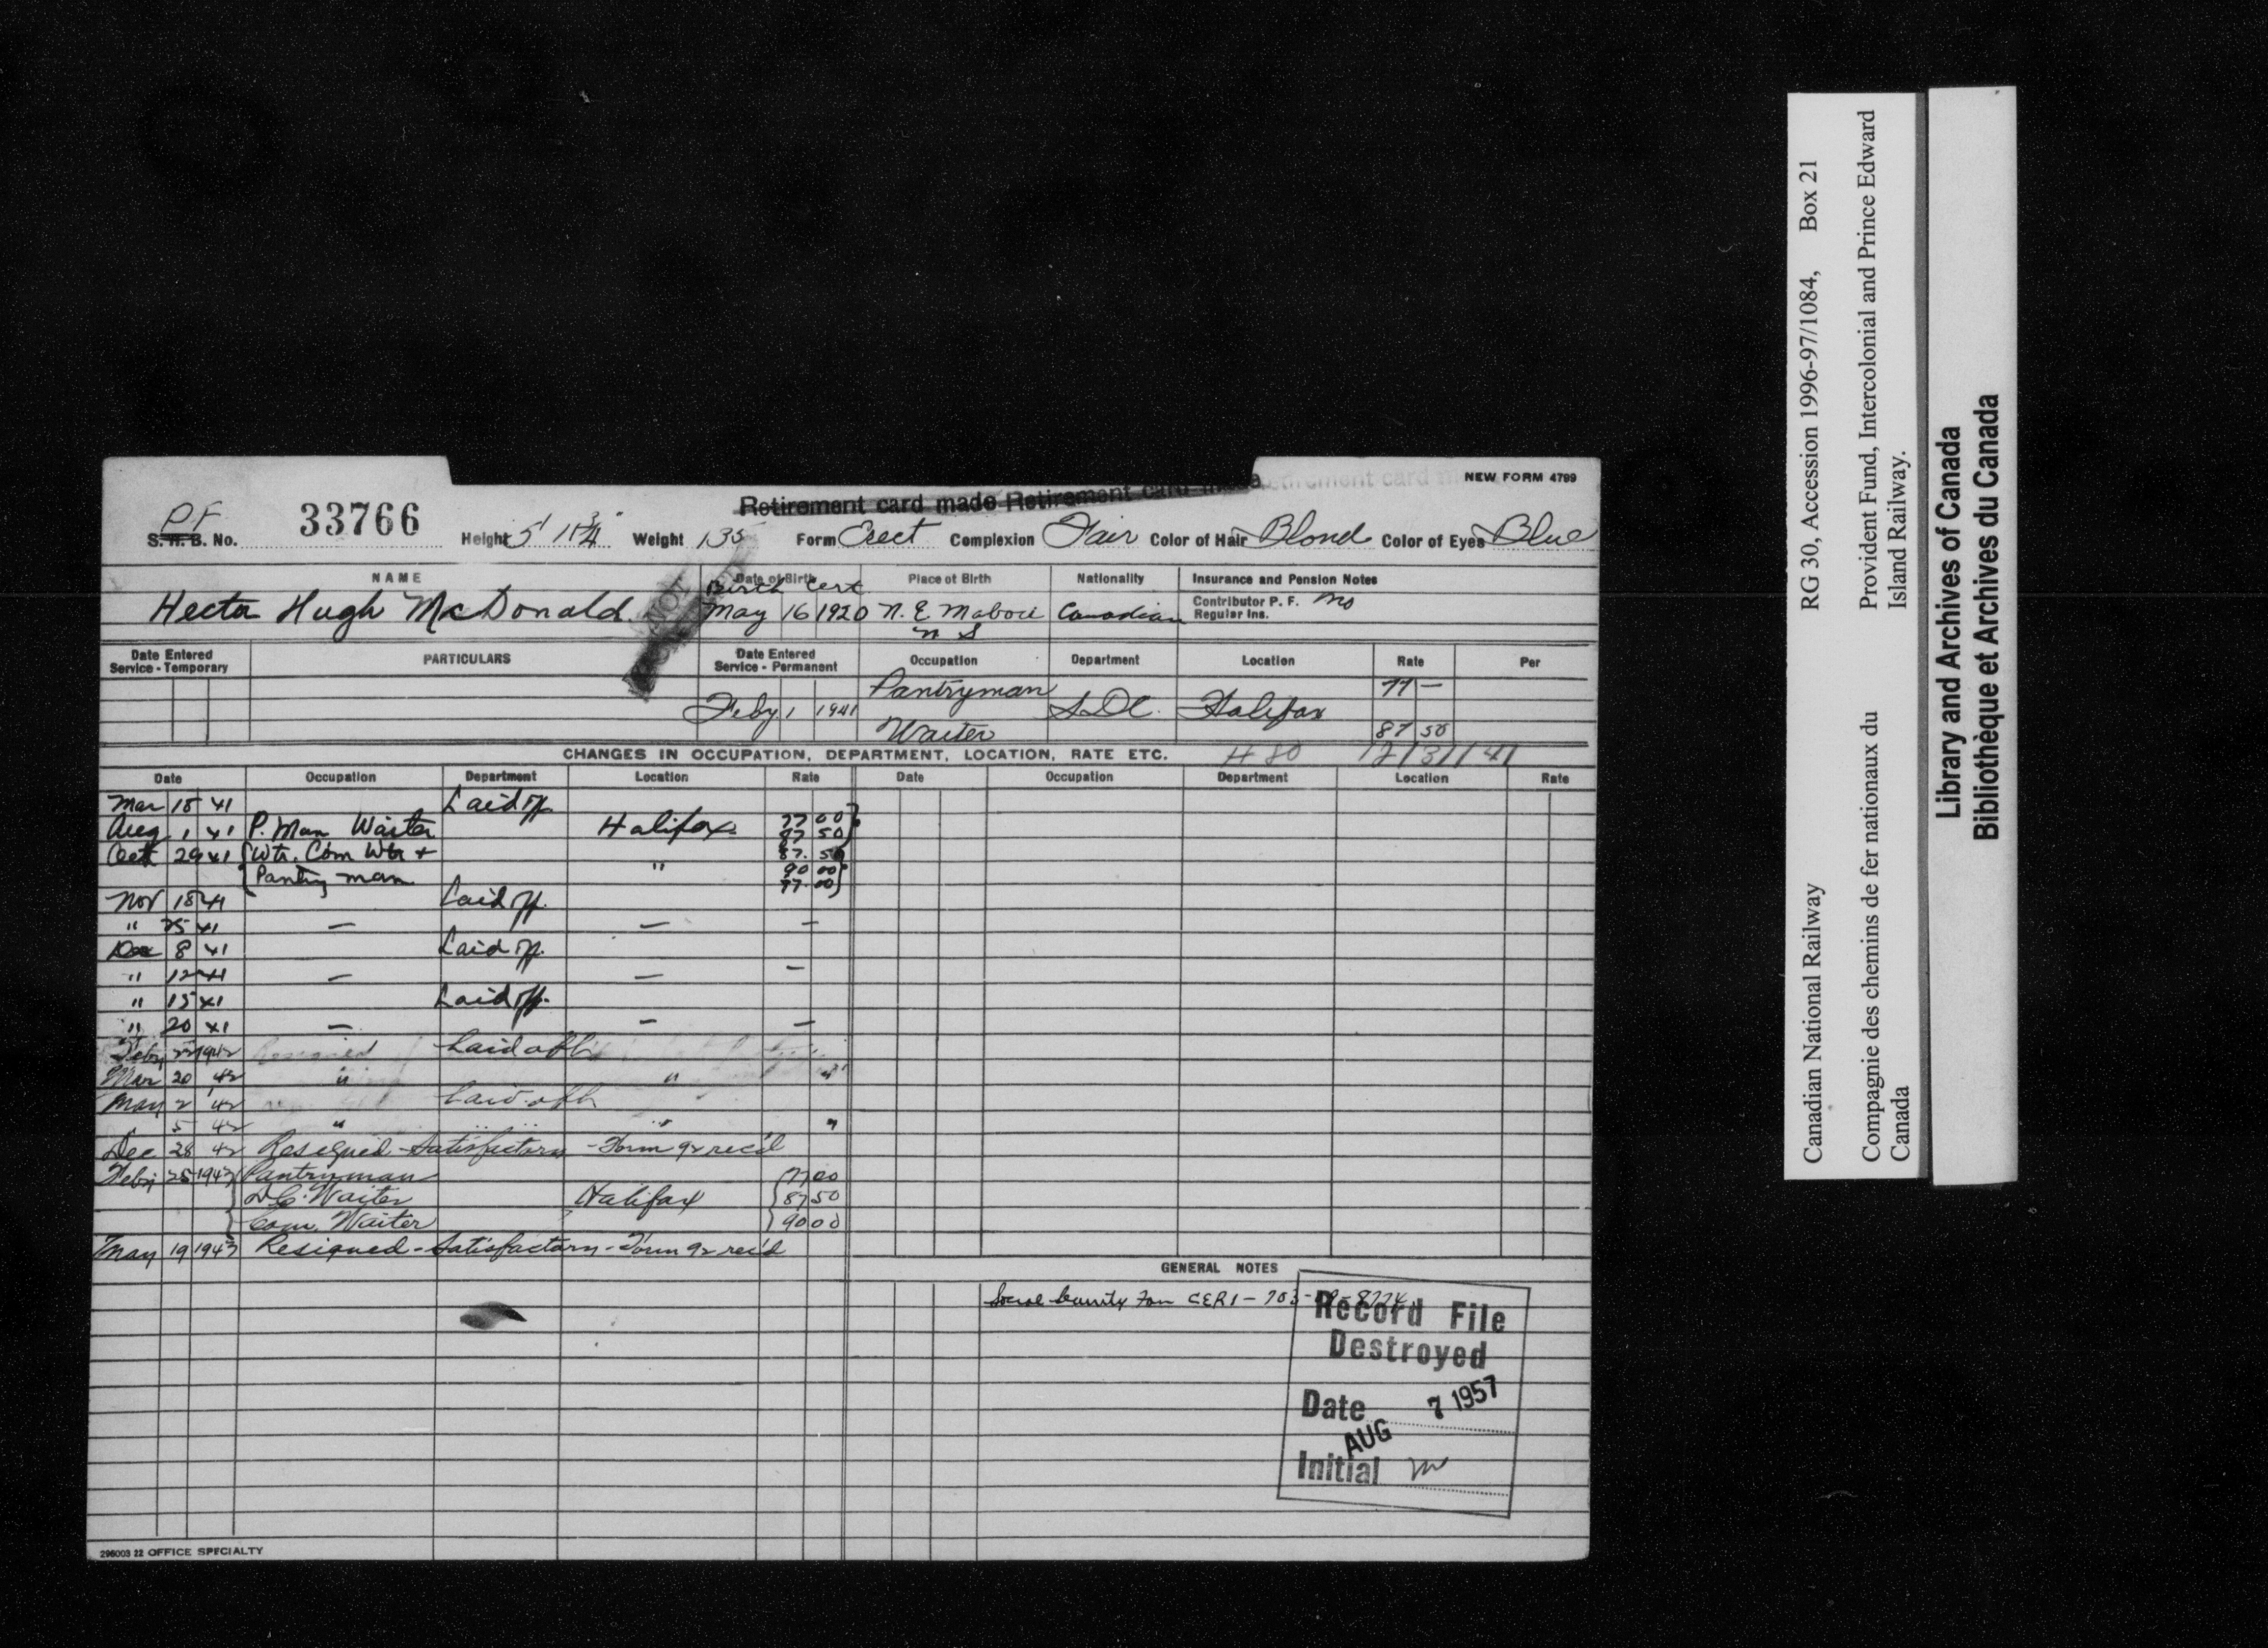 NEW FORM 4799
Retirement card made Retirement card made Retirement card made
P F
S. R. B. No. 33766 Height 5' 11 3/4" Weight 135 Form Erect Complexion Fair Color of Hair Blond Color of Eyes Blue
NAME Date of Birth Place of Birth Nationality Insurance and Pension Notes
Birth Cert
Contributor P. F. no
Hector Hugh McDonald. May 16 1920 N. E. Mabou Canadian Regular Ins.
N S
NOT
Date Entered Service - Temporary PARTICULARS Date Entered Service - Permanent Occupation Department Location Rate Per
Pantryman 77 —
Feby 1 1941 S.D.C. Halifax
Waiter 87 50
CHANGES IN OCCUPATION, DEPARTMENT, LOCATION, RATE ETC. H 80 12/31/41
Date Occupation Department Location Rate Date Occupation Department Location Rate
Mar 15 41 Laid off
Aug 1 41 P. Man Waiter Halifax 77 00
87 50
Oct 29 41 Wtr. Com Wtr + " 87. 50
Pantry man 90 00
77.00
Nov 18 41 Laid off.
" 25 41 — — —
Dec 8 41 Laid off.
" 12 41 — — —
" 15 41 Laid off.
" 20 41 — — —
Feby 22 1942 Laid off
Mar 20 42 " " "
May 2 42 Laid off
" 5 42 " " "
Dec 28 42 Resigned - Satisfactory - Form 92 rec'd
Feby 25 1943 Pantryman 77 00
D.C. Waiter Halifax 87 50
Com. Waiter 90 00
May 19 1943 Resigned - Satisfactory - Form 92 rec'd
GENERAL NOTES
Social Security Form CER1 - 703-
Record File
Destroyed
Date AUG 7 1957
Initial m
296003 22 OFFICE SPECIALTY
RG 30, Accession 1996-97/1084, Box 21
Provident Fund, Intercolonial and Prince Edward
Island Railway.
Canadian National Railway
Compagnie des chemins de fer nationaux du
Canada
Library and Archives of Canada
Bibliothèque et Archives du Canada